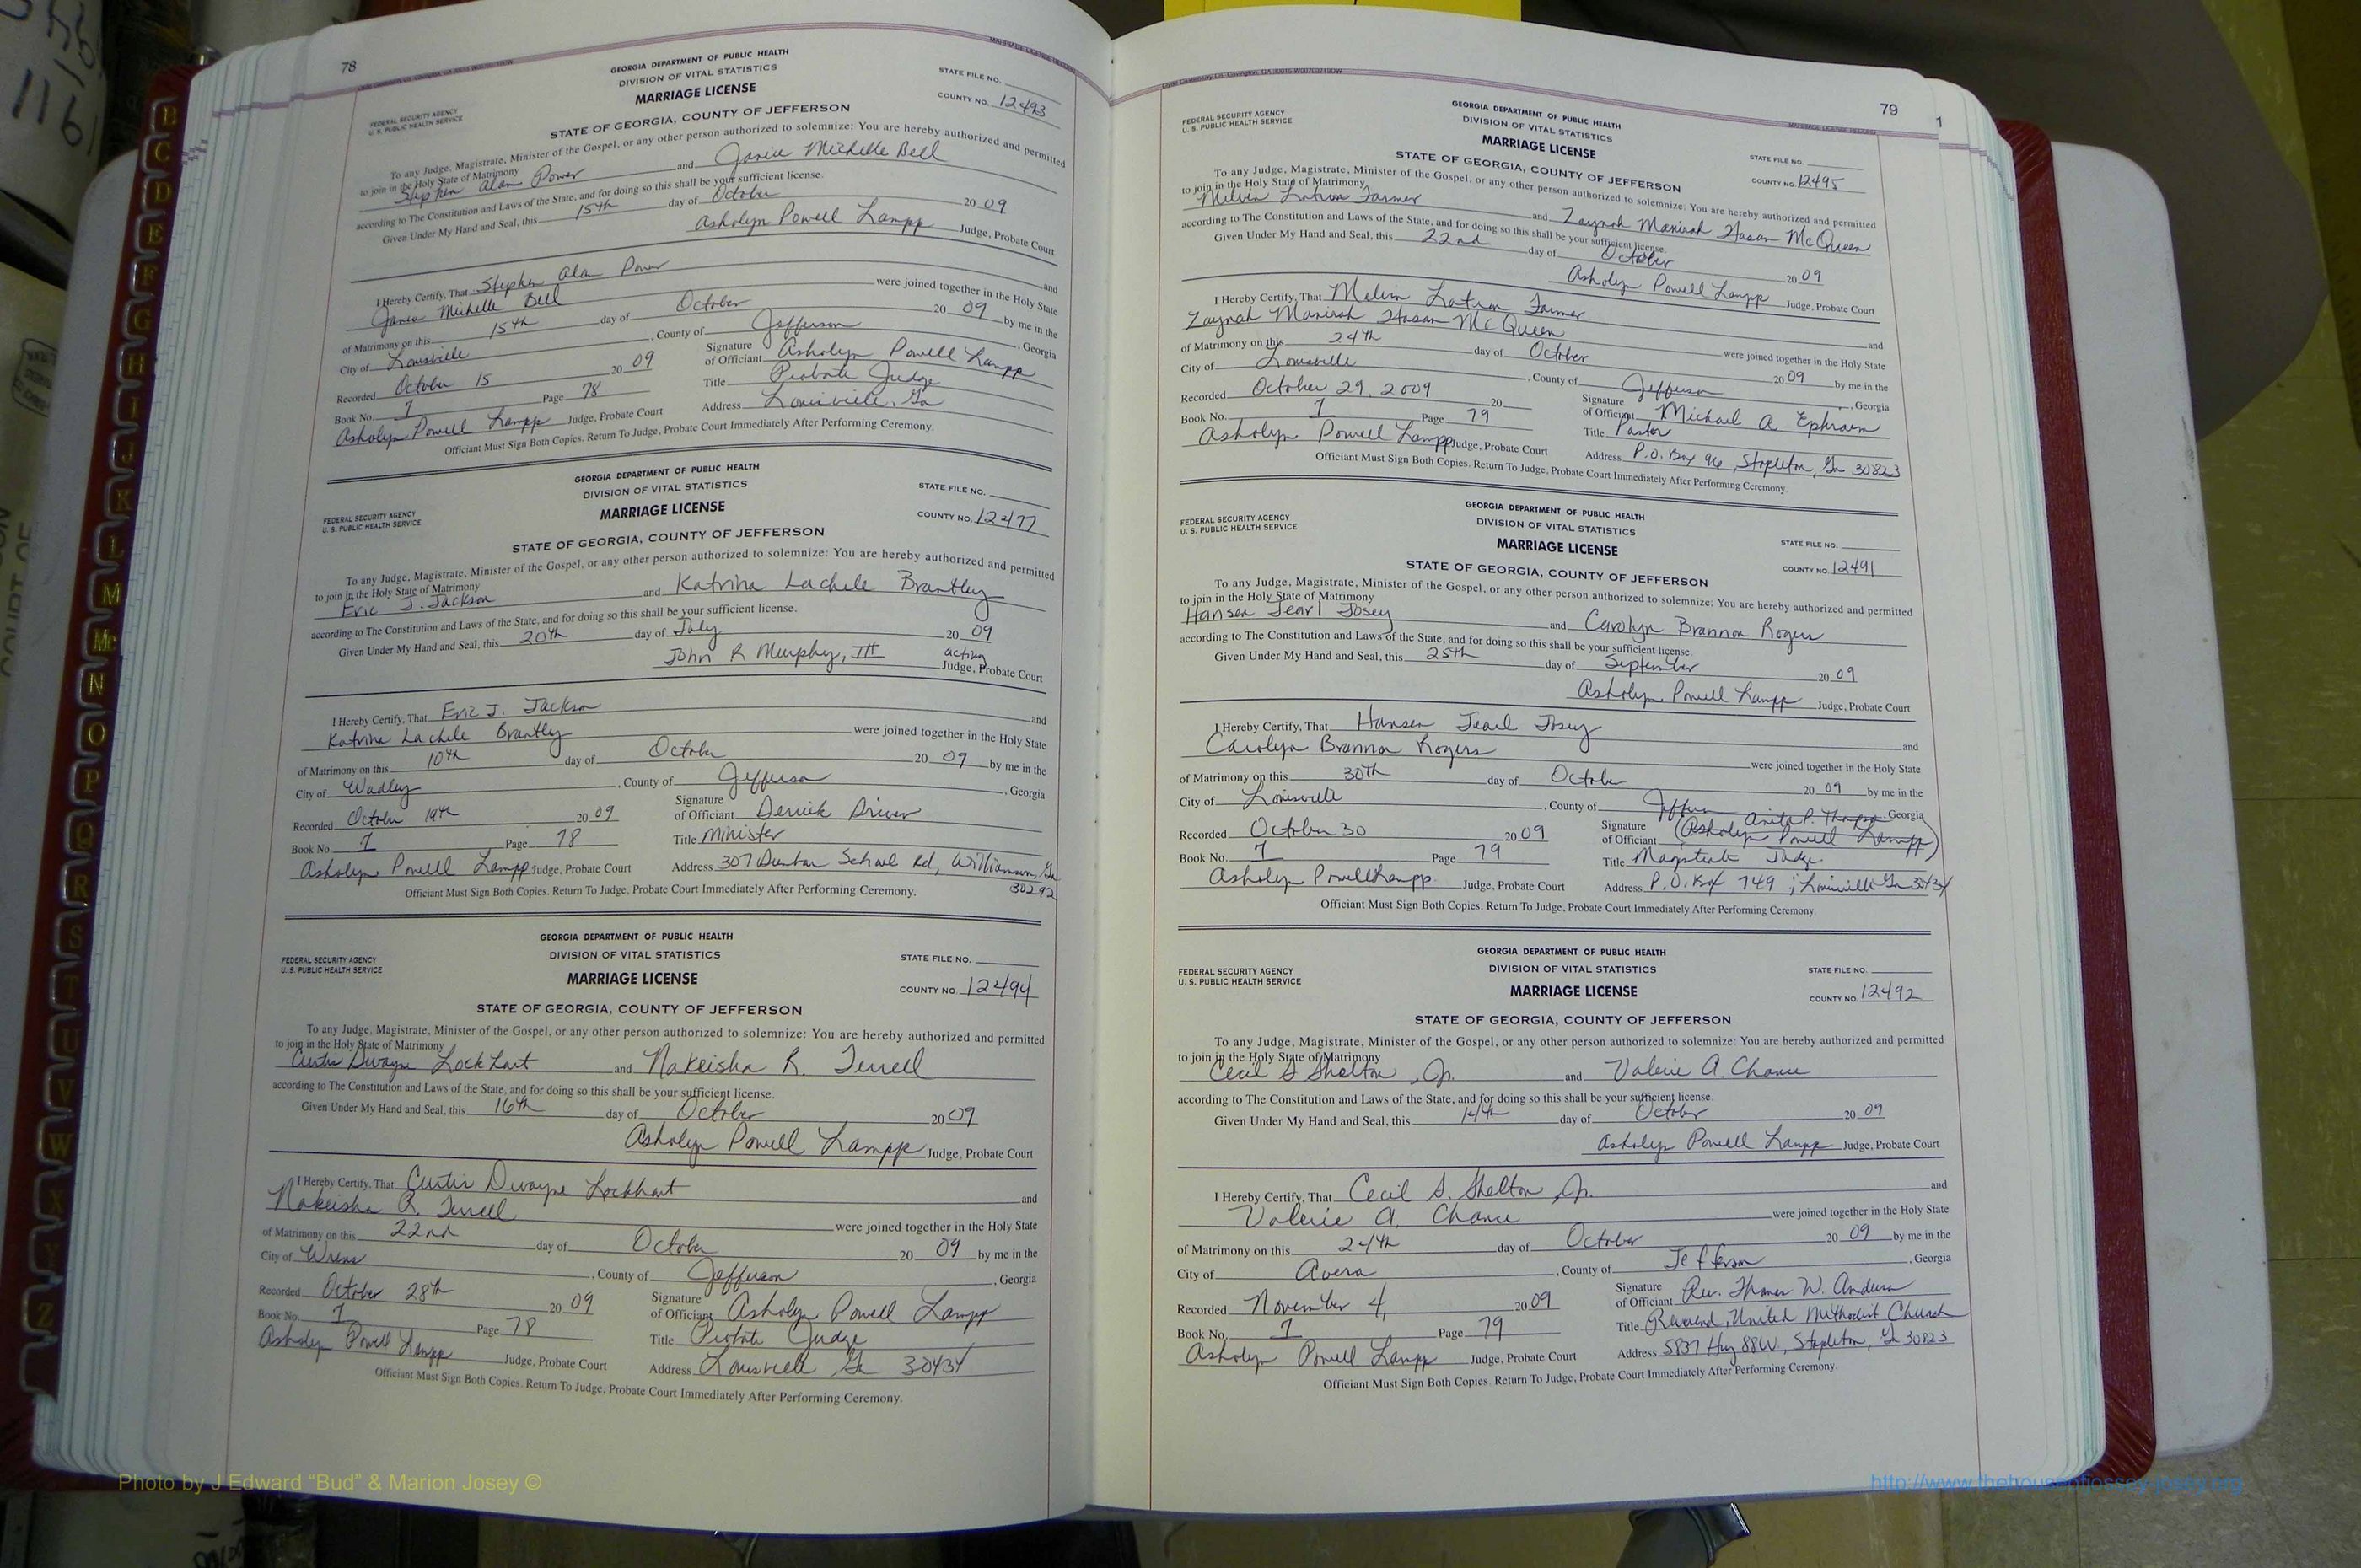 78
GEORGIA DEPARTMENT OF PUBLIC HEALTH
DIVISION OF VITAL STATISTICS
MARRIAGE LICENSE
FEDERAL SECURITY AGENCY
U. S. PUBLIC HEALTH SERVICE
STATE FILE NO.
COUNTY NO. 12493
STATE OF GEORGIA, COUNTY OF JEFFERSON
To any Judge, Magistrate, Minister of the Gospel, or any other person authorized to solemnize: You are hereby authorized and permitted
to join in the Holy State of Matrimony
Stephen Alan Power and Janice Michelle Bell
according to The Constitution and Laws of the State, and for doing so this shall be your sufficient license.
Given Under My Hand and Seal, this 15th day of October 20 09
Asholyn Powell Lampp Judge, Probate Court
I Hereby Certify, That Stephen Alan Power and
Janice Michelle Bell were joined together in the Holy State
of Matrimony on this 15th day of October 20 09 by me in the
City of Louisville, County of Jefferson, Georgia
Recorded October 15 20 09
Signature of Officiant Asholyn Powell Lampp
Book No. 1 Page 78
Title Probate Judge
Asholyn Powell Lampp Judge, Probate Court
Address Louisville, Ga
Officiant Must Sign Both Copies. Return To Judge, Probate Court Immediately After Performing Ceremony.
GEORGIA DEPARTMENT OF PUBLIC HEALTH
DIVISION OF VITAL STATISTICS
MARRIAGE LICENSE
FEDERAL SECURITY AGENCY
U. S. PUBLIC HEALTH SERVICE
STATE FILE NO.
COUNTY NO. 12477
STATE OF GEORGIA, COUNTY OF JEFFERSON
To any Judge, Magistrate, Minister of the Gospel, or any other person authorized to solemnize: You are hereby authorized and permitted
to join in the Holy State of Matrimony
Eric J. Jackson and Katrina Lachele Brantley
according to The Constitution and Laws of the State, and for doing so this shall be your sufficient license.
Given Under My Hand and Seal, this 20th day of July 20 09
John R Murphy, III acting Judge, Probate Court
I Hereby Certify, That Eric J. Jackson and
Katrina Lachele Brantley were joined together in the Holy State
of Matrimony on this 10th day of October 20 09 by me in the
City of Wadley, County of Jefferson, Georgia
Recorded October 19th 20 09
Signature of Officiant Derrick Driver
Book No. 1 Page 78
Title Minister
Asholyn Powell Lampp Judge, Probate Court
Address 307 Dunbar School Rd, Williamson, Ga 30292
Officiant Must Sign Both Copies. Return To Judge, Probate Court Immediately After Performing Ceremony.
GEORGIA DEPARTMENT OF PUBLIC HEALTH
DIVISION OF VITAL STATISTICS
MARRIAGE LICENSE
FEDERAL SECURITY AGENCY
U. S. PUBLIC HEALTH SERVICE
STATE FILE NO.
COUNTY NO. 12494
STATE OF GEORGIA, COUNTY OF JEFFERSON
To any Judge, Magistrate, Minister of the Gospel, or any other person authorized to solemnize: You are hereby authorized and permitted
to join in the Holy State of Matrimony
Curtis Dwayne Lockhart and Nakeisha R. Terrell
according to The Constitution and Laws of the State, and for doing so this shall be your sufficient license.
Given Under My Hand and Seal, this 16th day of October 20 09
Asholyn Powell Lampp Judge, Probate Court
I Hereby Certify, That Curtis Dwayne Lockhart and
Nakeisha R. Terrell were joined together in the Holy State
of Matrimony on this 22nd day of October 20 09 by me in the
City of Wrens, County of Jefferson, Georgia
Recorded October 28th 20 09
Signature of Officiant Asholyn Powell Lampp
Book No. 1 Page 78
Title Probate Judge
Asholyn Powell Lampp Judge, Probate Court
Address Louisville Ga 30434
Officiant Must Sign Both Copies. Return To Judge, Probate Court Immediately After Performing Ceremony.
79
GEORGIA DEPARTMENT OF PUBLIC HEALTH
DIVISION OF VITAL STATISTICS
MARRIAGE LICENSE
FEDERAL SECURITY AGENCY
U. S. PUBLIC HEALTH SERVICE
STATE FILE NO.
COUNTY NO. 12495
STATE OF GEORGIA, COUNTY OF JEFFERSON
To any Judge, Magistrate, Minister of the Gospel, or any other person authorized to solemnize: You are hereby authorized and permitted
to join in the Holy State of Matrimony
Melvin Latron Farmer and Zaynah Manirah Hasan McQueen
according to The Constitution and Laws of the State, and for doing so this shall be your sufficient license.
Given Under My Hand and Seal, this 22nd day of October 20 09
Asholyn Powell Lampp Judge, Probate Court
I Hereby Certify, That Melvin Latron Farmer and
Zaynah Manirah Hasan McQueen were joined together in the Holy State
of Matrimony on this 24th day of October 20 09 by me in the
City of Louisville, County of Jefferson, Georgia
Recorded October 29, 2009 20
Signature of Officiant Michael A. Ephraim
Book No. 1 Page 79
Title Pastor
Asholyn Powell Lampp Judge, Probate Court
Address P.O. Box 96, Stapleton, Ga 30823
Officiant Must Sign Both Copies. Return To Judge, Probate Court Immediately After Performing Ceremony.
GEORGIA DEPARTMENT OF PUBLIC HEALTH
DIVISION OF VITAL STATISTICS
MARRIAGE LICENSE
FEDERAL SECURITY AGENCY
U. S. PUBLIC HEALTH SERVICE
STATE FILE NO.
COUNTY NO. 12491
STATE OF GEORGIA, COUNTY OF JEFFERSON
To any Judge, Magistrate, Minister of the Gospel, or any other person authorized to solemnize: You are hereby authorized and permitted
to join in the Holy State of Matrimony
Hansen Jearl Josey and Carolyn Brannon Rogers
according to The Constitution and Laws of the State, and for doing so this shall be your sufficient license.
Given Under My Hand and Seal, this 25th day of September 20 09
Asholyn Powell Lampp Judge, Probate Court
I Hereby Certify, That Hansen Jearl Josey and
Carolyn Brannon Rogers were joined together in the Holy State
of Matrimony on this 30th day of October 20 09 by me in the
City of Louisville, County of Jefferson, Georgia
Recorded October 30 20 09
Signature of Officiant Anita P. (Asholyn Powell Lampp)
Book No. 1 Page 79
Title Magistrate Judge
Asholyn Powell Lampp Judge, Probate Court
Address P.O. Box 749; Louisville Ga 30434
Officiant Must Sign Both Copies. Return To Judge, Probate Court Immediately After Performing Ceremony.
GEORGIA DEPARTMENT OF PUBLIC HEALTH
DIVISION OF VITAL STATISTICS
MARRIAGE LICENSE
FEDERAL SECURITY AGENCY
U. S. PUBLIC HEALTH SERVICE
STATE FILE NO.
COUNTY NO. 12492
STATE OF GEORGIA, COUNTY OF JEFFERSON
To any Judge, Magistrate, Minister of the Gospel, or any other person authorized to solemnize: You are hereby authorized and permitted
to join in the Holy State of Matrimony
Cecil S Shelton, Jr. and Valerie A. Chance
according to The Constitution and Laws of the State, and for doing so this shall be your sufficient license.
Given Under My Hand and Seal, this 14th day of October 20 09
Asholyn Powell Lampp Judge, Probate Court
I Hereby Certify, That Cecil S. Shelton, Jr. and
Valerie A. Chance were joined together in the Holy State
of Matrimony on this 24th day of October 20 09 by me in the
City of Avera, County of Jefferson, Georgia
Recorded November 4, 20 09
Signature of Officiant Rev. Thomas W. Anderson
Book No. 1 Page 79
Title Reverend, United Methodist Church
Asholyn Powell Lampp Judge, Probate Court
Address 5837 Hwy 88W, Stapleton, Ga 30823
Officiant Must Sign Both Copies. Return To Judge, Probate Court Immediately After Performing Ceremony.
B
C
D
E
F
G
H
I
J
K
L
M
Mc
N
O
P
Q
R
S
T
U
V
W
X
Y
Z
Photo by J Edward “Bud” & Marion Josey ©
http://www.thehouseofjossey-josey.org